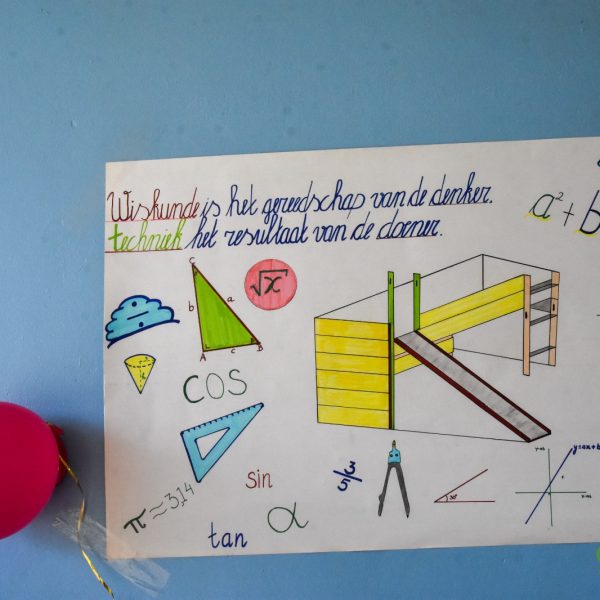 Wiskunde is het gereedschap van de denker.
techniek het resultaat van de doener.
a² + b
C
b
a
A
c
B
√x
cos
π ≈ 3,14
sin
tan
α
3/5
y=ax+b